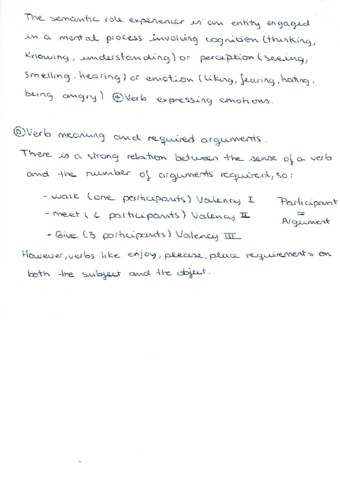 The semantic role experiencer is an entity engaged
in a mental process involving cognition (thinking,
Knowing, understanding) or perception (seeing,
smelling, hearing) or emotion (liking, fearing, hating,
being angry) ⊕ Verb expressing emotions.
Verb meaning and required arguments.
There is a strong relation between the sense of a verb
and the number of arguments required, so:
- walk (one participants) Valency I
- meet (2 participants) Valency II
- Give (3 participants) Valency III
Participant
=
Argument
However, verbs like enjoy, please, place requirements on
both the subject and the object.